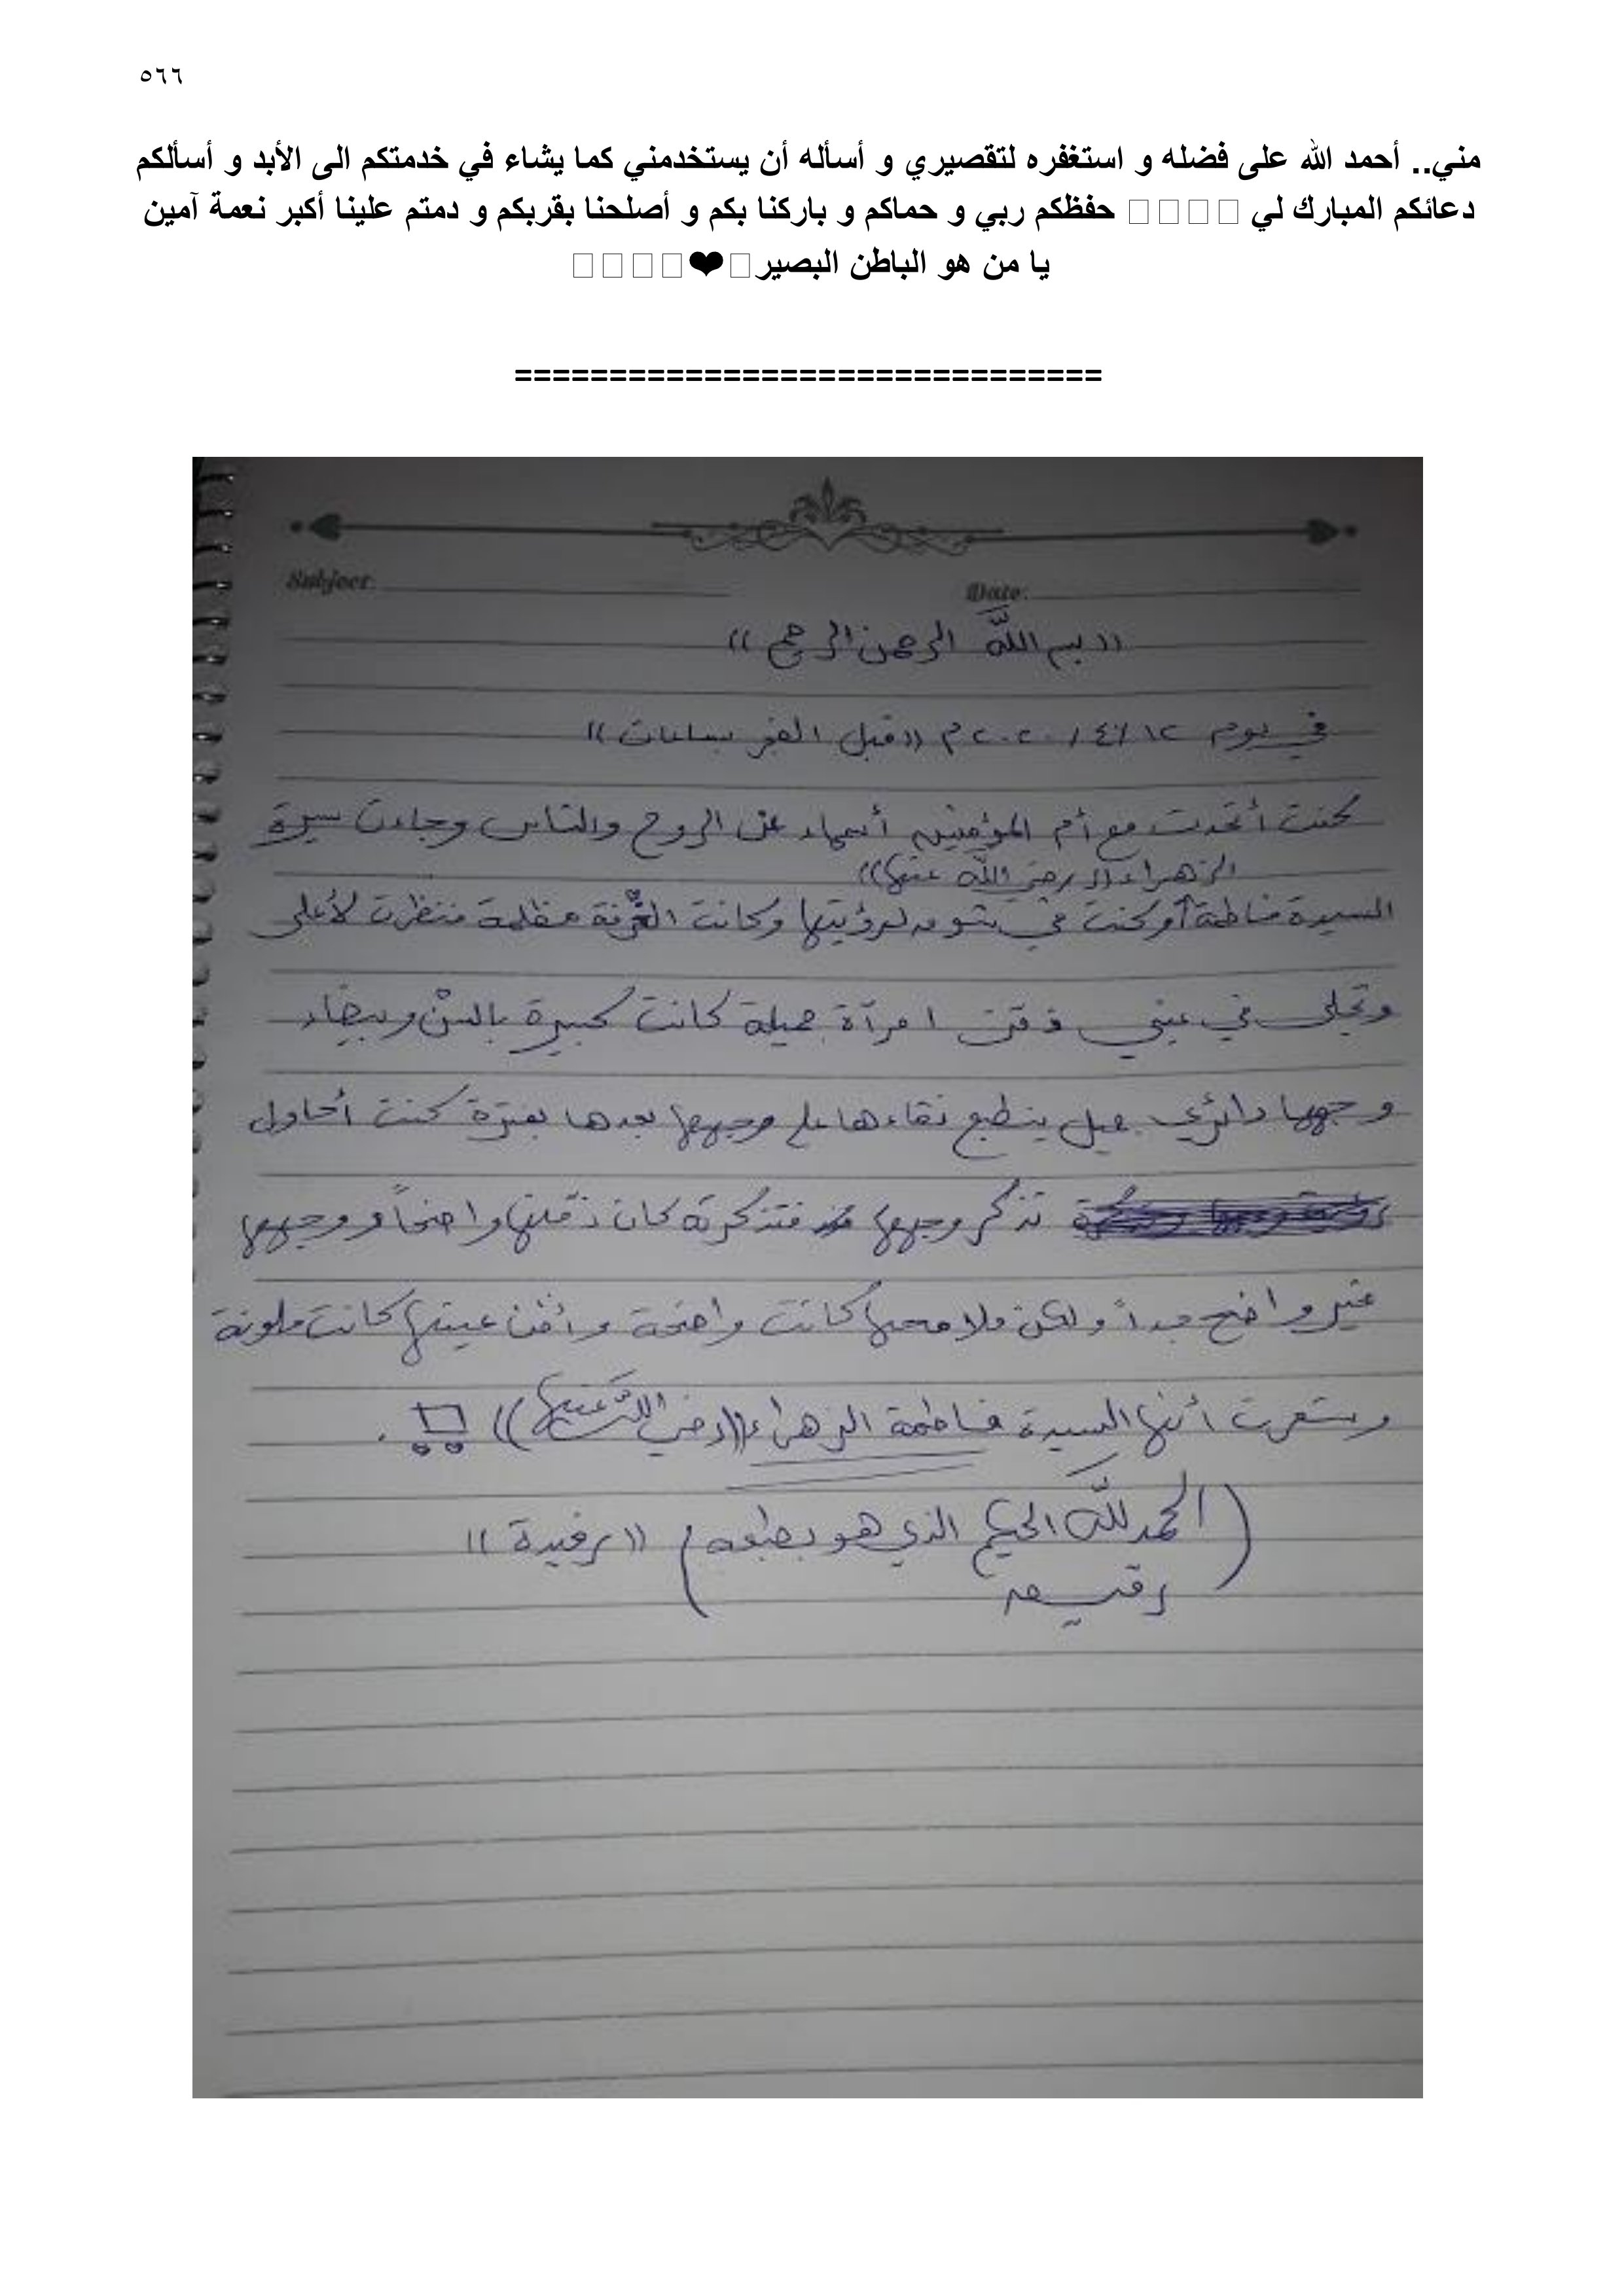 ٥٦٦
مني.. أحمد الله على فضله و استغفره لتقصيري و أسأله أن يستخدمني كما يشاء في خدمتكم الى الأبد و أسألكم
دعائكم المبارك لي □□□□ حفظكم ربي و حماكم و باركنا بكم و أصلحنا بقربكم و دمتم علينا أكبر نعمة آمين
يا من هو الباطن البصير□❤□□□□
==============================
Subject:
Date:
((بسم الله الرحمن الرحيم))
في يوم ١٢/٤/٢٠٢٠م ((قبل الفجر بساعات))
كنت أتحدث مع أم المؤمنين أسماء عن الروح والناس وجاءت سيرة
الزهراء ((رضي الله عنها))
السيدة فاطمة وكنت في شوق لرؤيتها وكانت الغرفة مظلمة فنظرت لأعلى
وتجلى في عيني امرأة جميلة كانت كبيرة بالسن وبيضاء
وجهها دائري جميل ينطبع نقاءها على وجهها بعدها بفترة كنت أحاول
تذكر وجهها فتذكرته كان واضحاً ووجهها
غير واضح جداً ولكن ملامحها كانت واضحة وأظن عينيها كانت ملونة
وشعرت أنها السيدة فاطمة الزهراء ((رضي الله عنها)) .
(الحمد لله الحكيم الذي هو بطبعه) ((رفيدة))